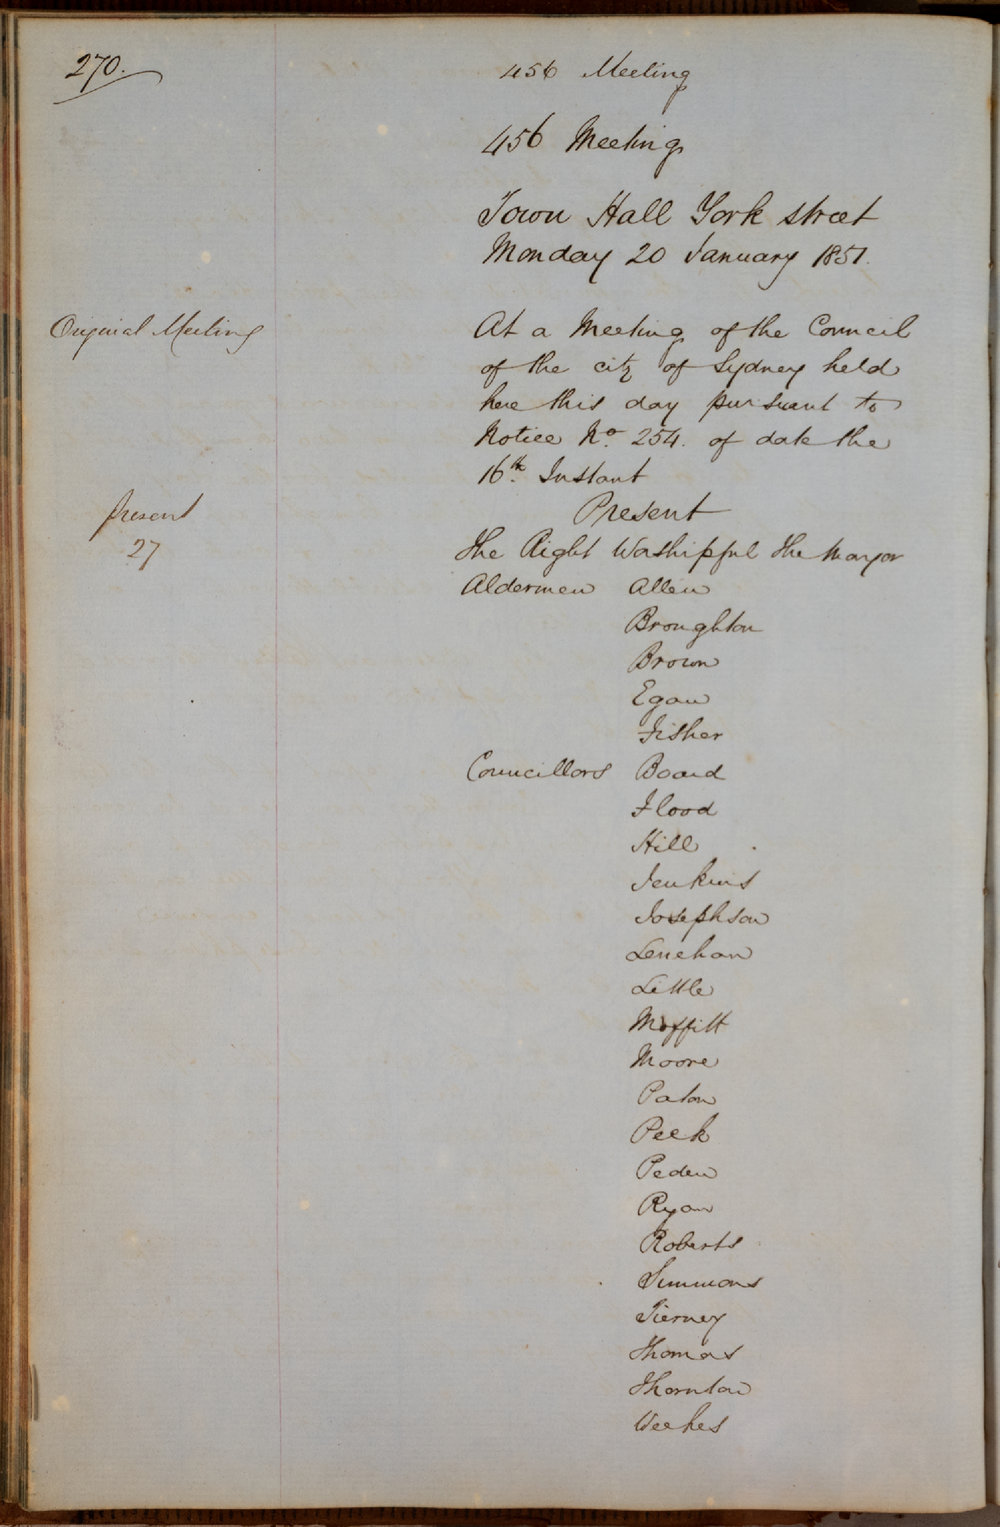 270.
456 Meeting
456 Meeting
Town Hall York street
Monday 20 January 1851.
Original Meeting
At a Meeting of the Council
of the city of Sydney held
here this day pursuant to
Notice No. 254. of date the
16th. Instant
Present
27
Present
The Right Worshipful The Mayor
Aldermen Allen
Broughton
Brown
Egan
Fisher
Councillors Board
Flood
Hill
Jenkins
Josephson
Lenehan
Little
Moffitt
Moore
Paton
Peek
Peden
Ryan
Roberts
Simmons
Tierney
Thomas
Thornton
Weekes